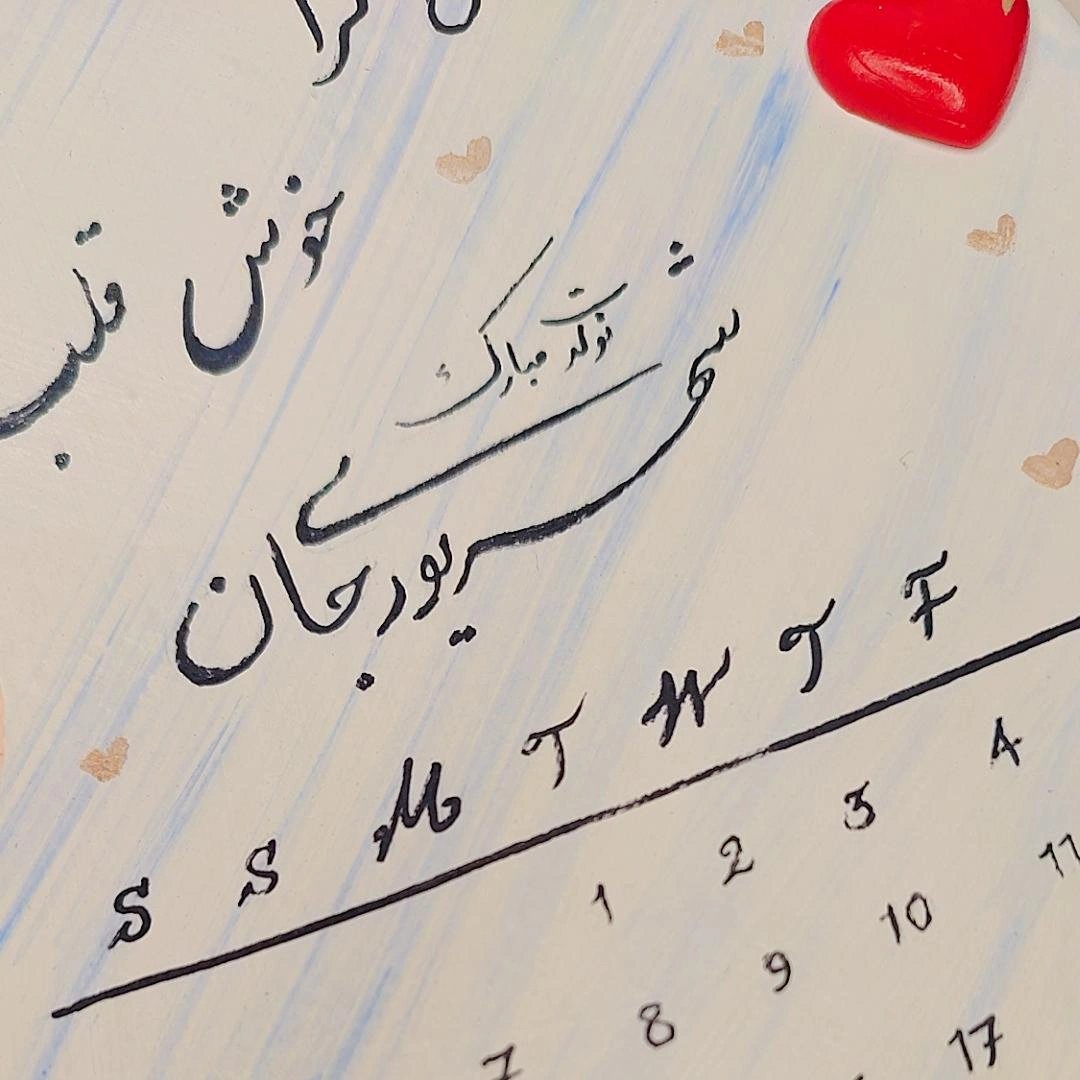 خوش قلب
تولدت مبارک
شهریوری جان
S S M T W T F
1 2 3 4
7 8 9 10 11
17